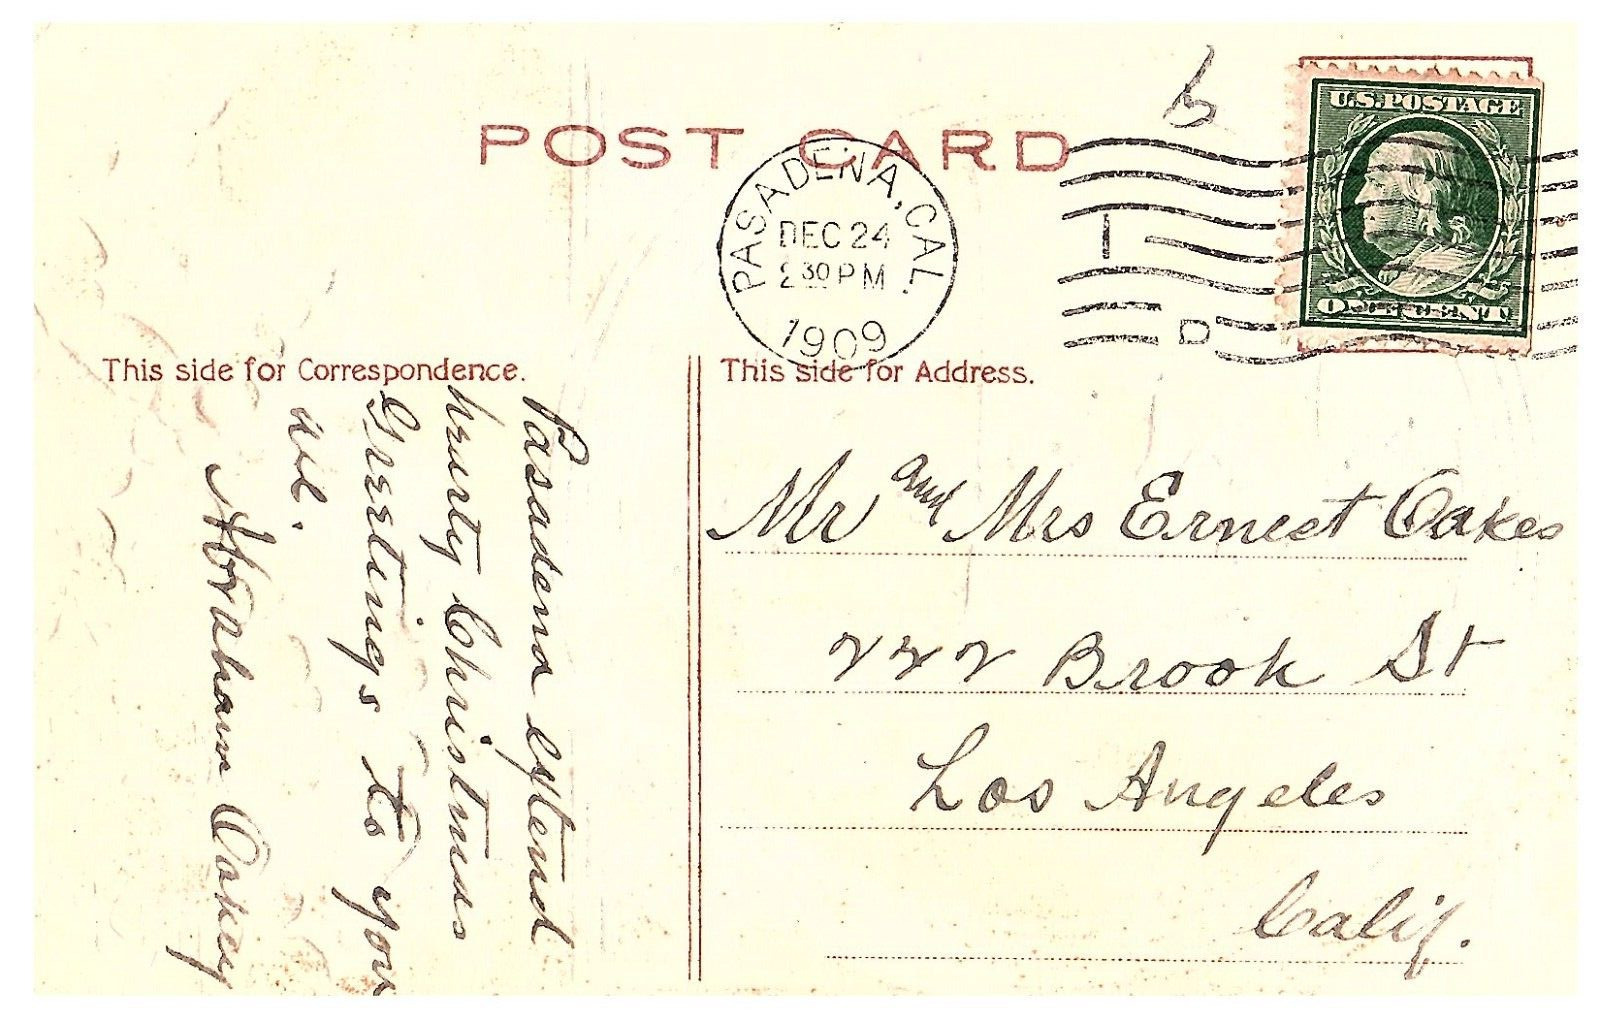 POST CARD
PASADENA, CAL.
DEC 24
2 30 PM
1909
1
D
U.S. POSTAGE
ONE CENT
This side for Correspondence.
Pasadena extend
hearty Christmas
Greetings to you
all.
Abraham Oakey
This side for Address.
Mr and Mrs Ernest Oakes
242 Brook St
Los Angeles
Calif.